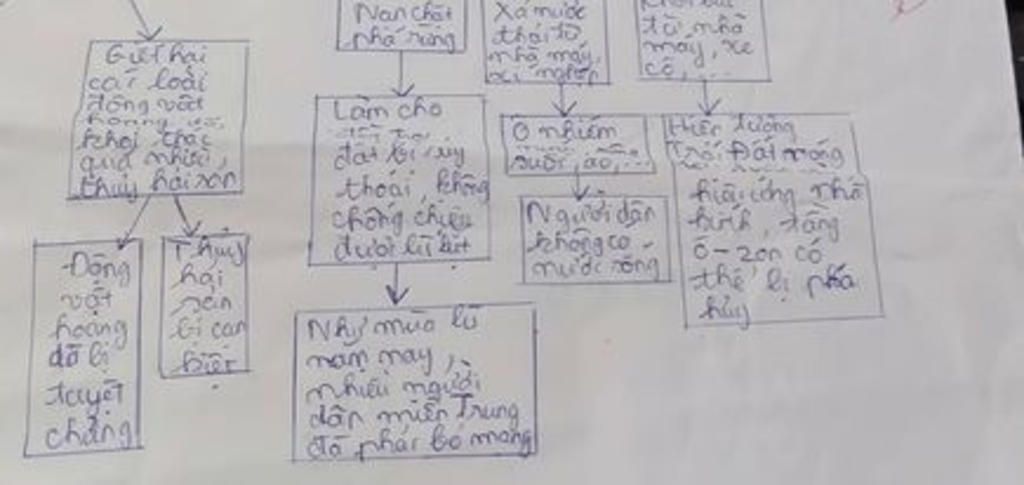 Giết hại
các loài
động vật
hoang dã,
khai thác
quá nhiều,
thủy hải sản
Động
vật
hoang
dã bị
tuyệt
chủng
Thủy
hải
sản
bị cạn
kiệt
Nạn chặt
phá rừng
Làm cho
đất bị suy
thoái không
chống chịu
được lũ lụt
Như mùa lũ
năm nay,
nhiều người
dân miền Trung
đã phải bỏ mạng
Xả nước
thải từ
nhà máy,
xí nghiệp
Ô nhiễm
suối, ao,...
Người dân
không có
nước sống
Khói bụi
từ nhà
máy, xe
cộ,...
Hiện tượng
Trái Đất nóng
hiệu ứng nhà
kính, tầng
ô-zon có
thể bị phá
hủy